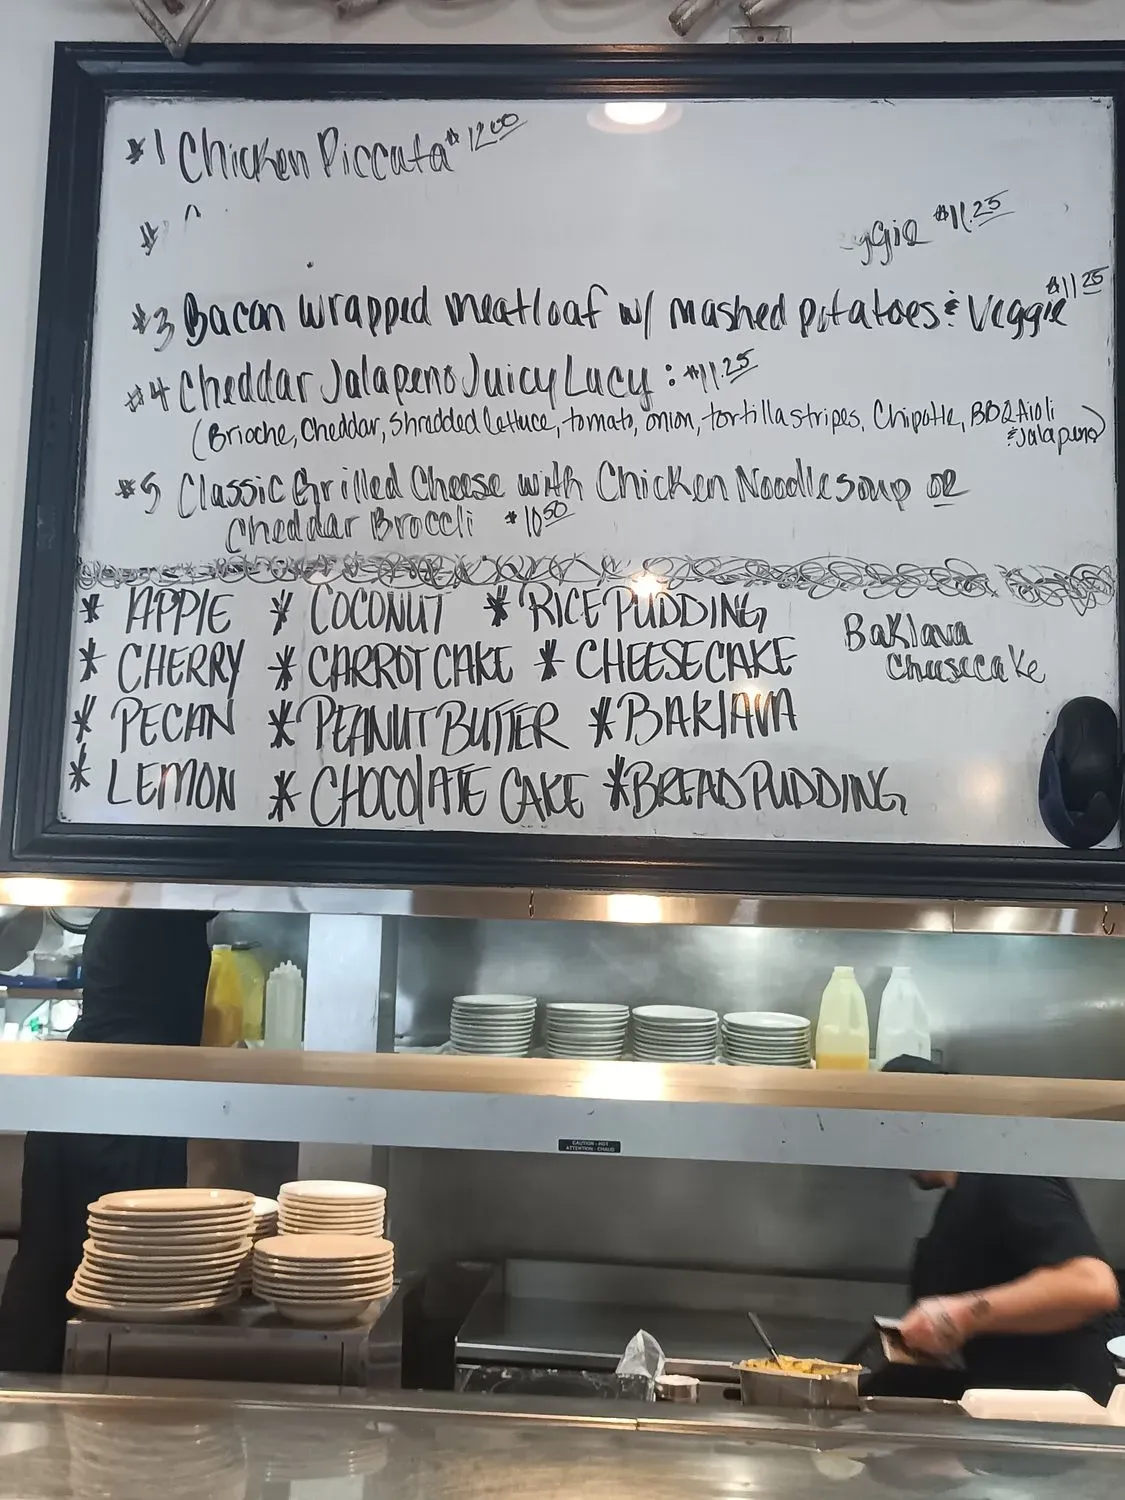 #1 Chicken Piccata $12.00
# $11.25
#3 Bacon wrapped meatloaf w/ mashed potatoes & Veggie $11.25
#4 Cheddar Jalapeno Juicy Lucy : $11.25
(Brioche, Cheddar, Shredded lettuce, tomato, onion, tortilla stripes, Chipotle, BBQ Aioli
& Jalapeno)
#5 Classic Grilled Cheese with Chicken Noodle soup or
Cheddar Broccli $10.50
* APPLE * COCONUT * RICE PUDDING
* CHERRY * CARROT CAKE * CHEESECAKE
* PECAN * PEANUT BUTTER * BAKLAVA
* LEMON * CHOCOLATE CAKE * BREAD PUDDING
Baklava
Cheesecake
CAUTION - HOT
ATTENTION - CHAUD